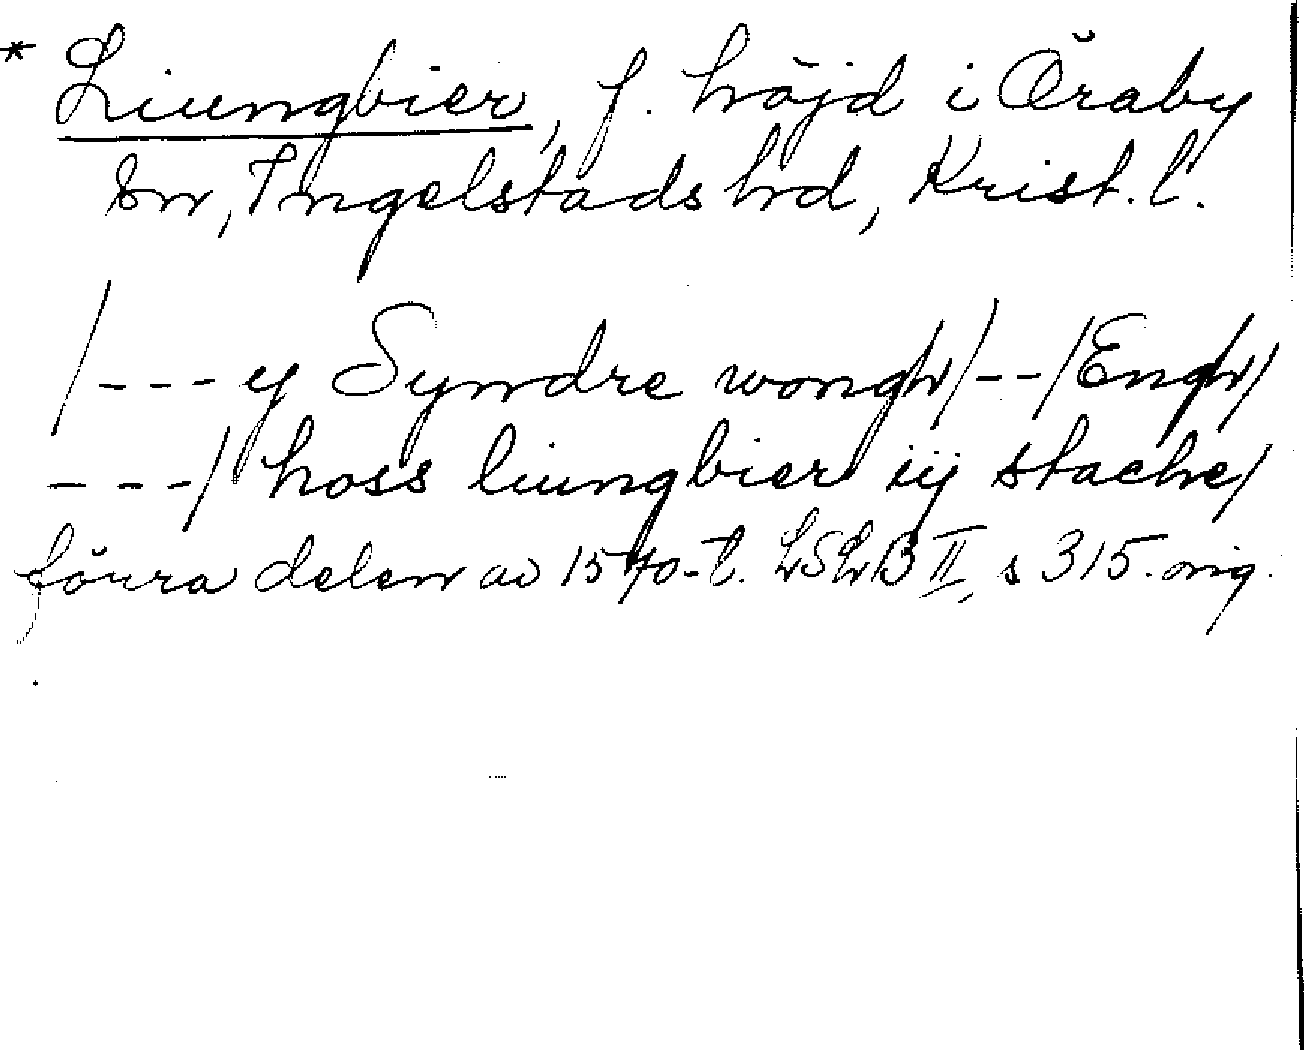 * Liungbier, f. höjd i Öraby
sn, Ingelstads hd, Krist. l.
/--- y Syndre wongh/--/Engh/
---/ hoss liungbier iij stacke/
förra delen av 1570-t. LSLB II, s 315. orig.